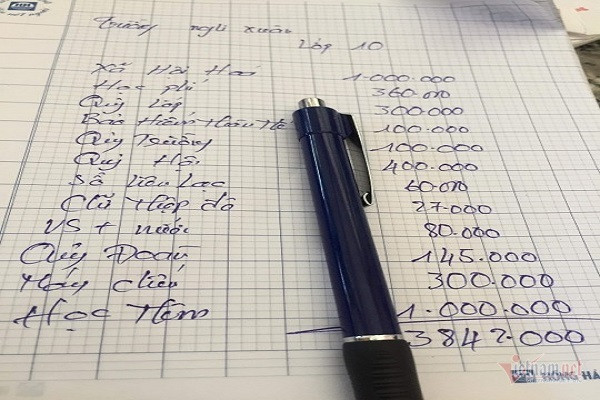 trường nghi xuân
lớp 10
Xã Hội Hoá 1.000.000
Học phí 360.000
Quỹ lớp 300.000
Bảo Hiểm 100.000
Quỹ Trường 100.000
Quỹ Hội 400.000
Sổ liên lạc 60.000
Chữ thập đỏ 27.000
VS + nước 80.000
Quỹ Đoàn 145.000
Máy chiếu 300.000
Học thêm 1.000.000
3842.000
vietnamnet
HỒNG HÀ